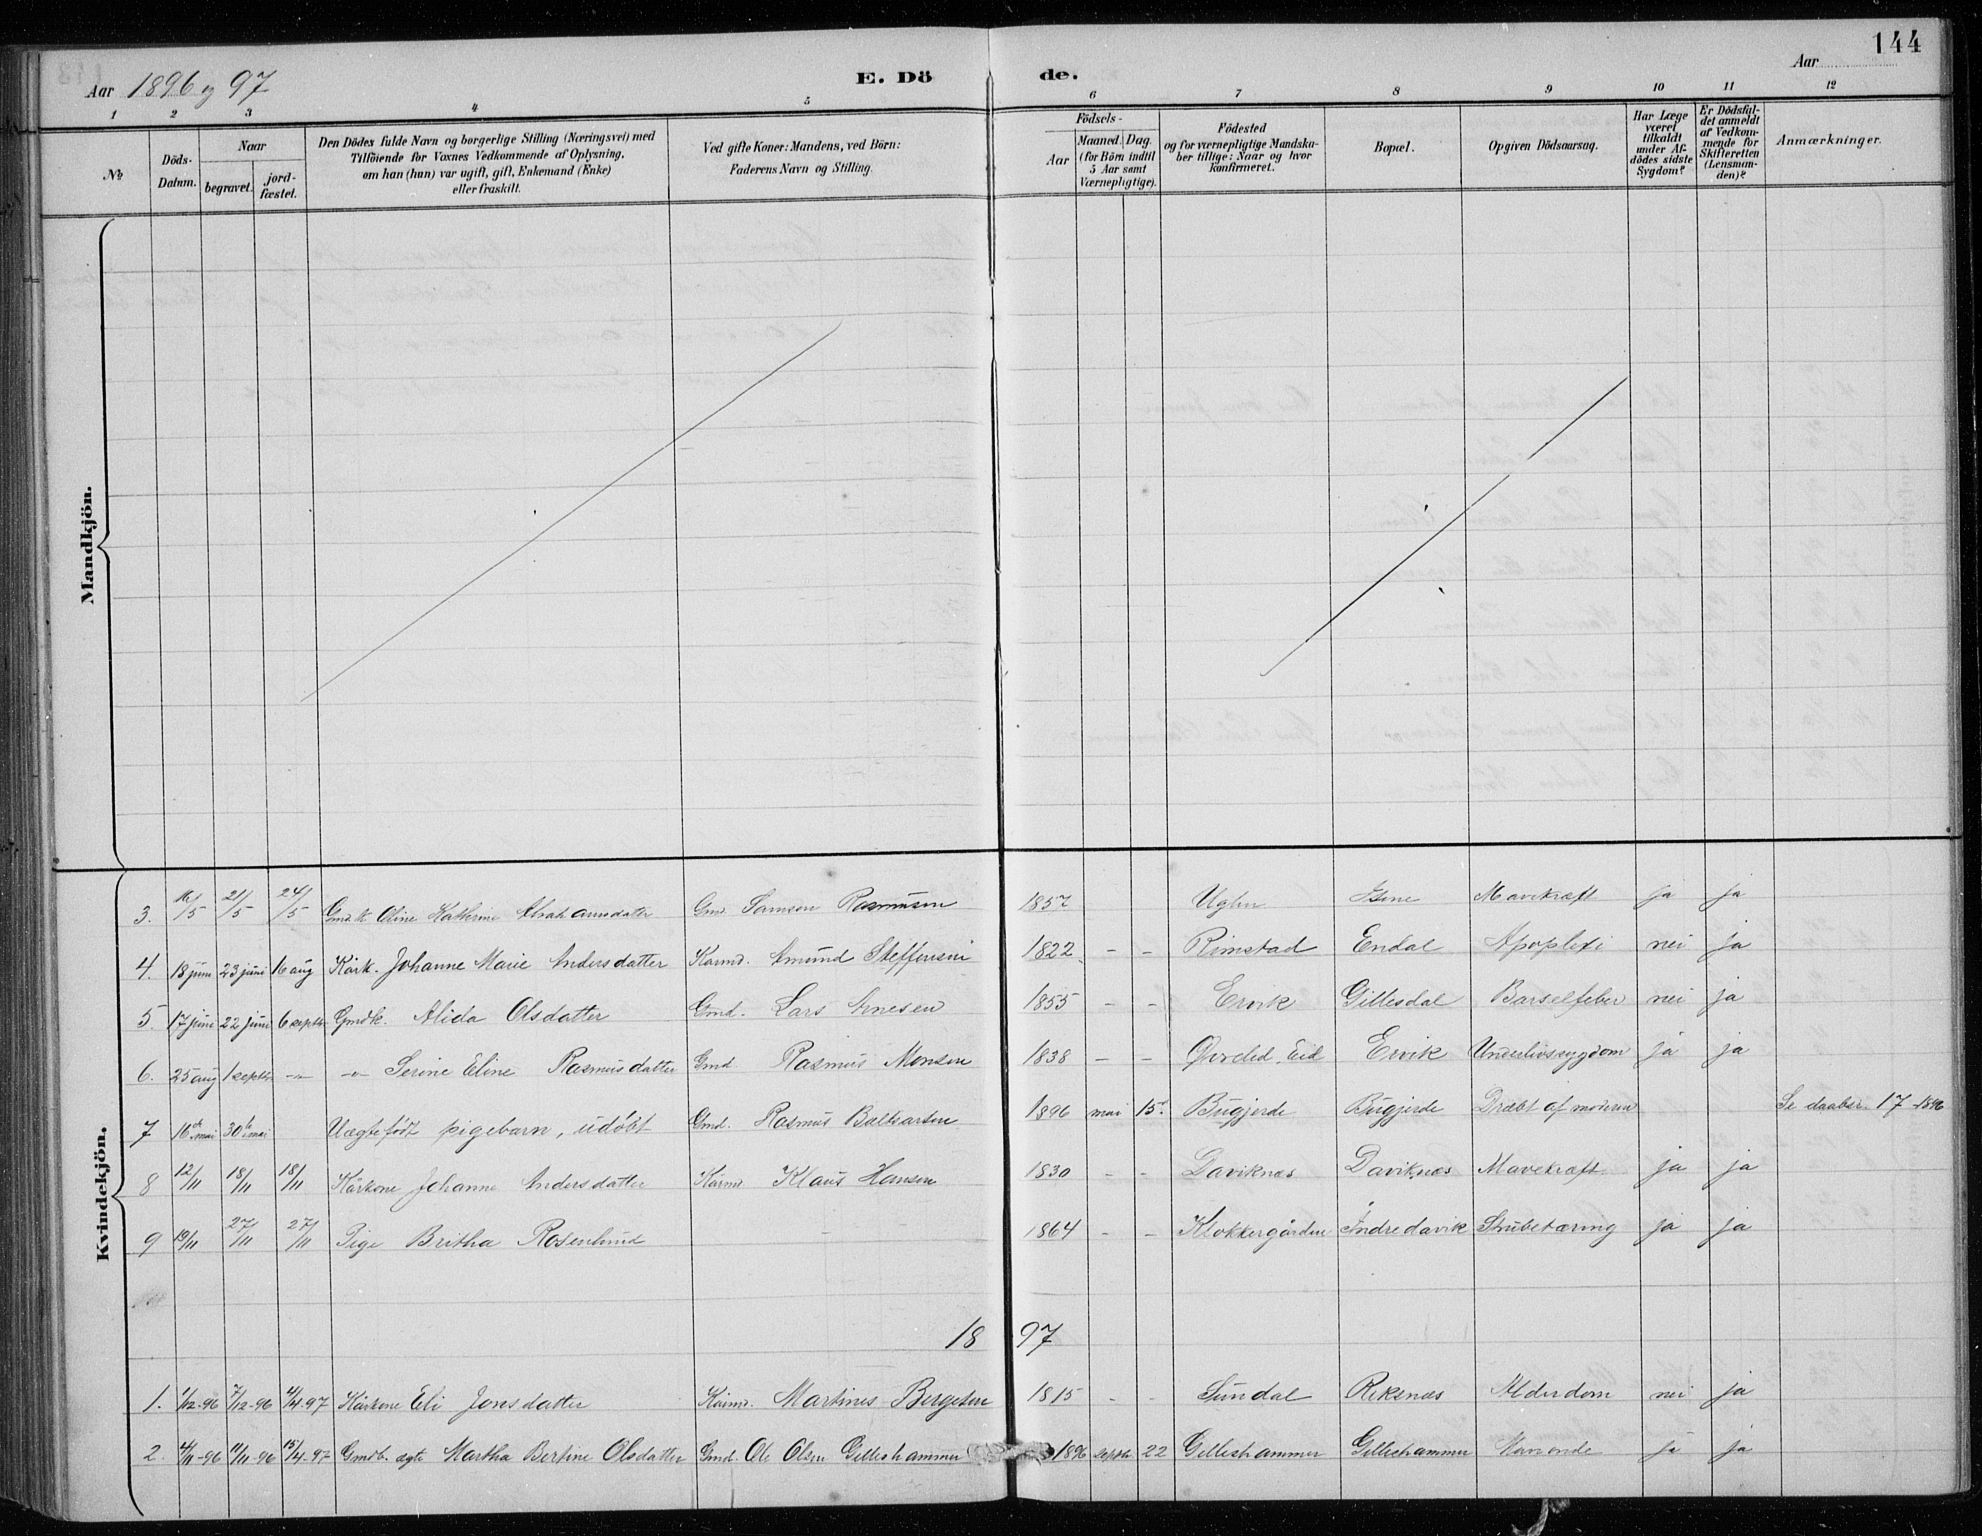 144
Aar 1896 og 97
E. Dö
de.
Aar
1 2 3 4 5 6 7 8 9 10 11 12
№
Döds-Datum.
Naar
begravet.
jord-fæstet.
Den Dödes fulde Navn og borgerlige Stilling (Næringsvei) med
Tilföiende for Voxnes Vedkommende af Oplysning,
om han (hun) var ugift, gift, Enkemand (Enke)
eller fraskilt.
Ved gifte Koner: Mandens, ved Börn:
Faderens Navn og Stilling.
Födsels-
Aar
Maaned. Dag.
(for Börn indtil
5 Aar samt
Værnepligtige).
Födested
og for værnepligtige Mandska-
ber tillige: Naar og hvor
konfirmeret.
Bopæl.
Opgiven Dödsaarsag.
Har Læge
været
tilkaldt
under Af-
dödes sidste
Sygdom?
Er Dödsfal-
det anmeldt
af Vedkom-
mende for
Skifteretten
(Lensman-
den)?
Anmærkninger.
Mandkjön.
Kvindekjön.
3. 16/5 21/5 24/5 Gmdk Oline Kathrine Abrahamsdatter Gmd. Samson Rasmusen 1857 Uglen Isene Mavekræft ja ja
4. 18 juni 23 juni 16 aug Kårk. Johanne Marie Andersdatter Kaarmd. Amund Steffensen 1822 - - Rimstad Endal Apoplexi nei ja
5. 17 juni 22 juni 6 septbr Gmdk. Alida Olsdatter Gmd. Lars Arnesen 1855 - - Ervik Gillesdal Barselfeber nei ja
6. 25 aug 1 septbr -"- -"- Serine Eline Rasmusdatter Gmd Rasmus Monsen 1838 - - Øvreled. Eid Ervik Underlivssygdom ja ja
7 16de mai 30te mai Uægtefødt pigebarn, udøbt Gmd. Rasmus Baltsarsen 1896 mai 15d. Bugjerde Bugjerde Dræbt af moderen Se daabsr. 17-1896
8 12/11 18/11 18/11 Kårkone Johanne Andersdatter Kårmd Klaus Hansen 1830 - - Daviknæs Daviknæs Mavekræft ja ja
9 19/11 27/11 27/11 Pige Britha Rosenlund - 1864 - - Klokkergården Indredavik Strubetæring ja ja
18 97
1. 1/12-96 7/12-96 4/4-97 Kårkone Eli Jonsdatter Kårmd. Martinus Bergesen 1815 - - Sundal Rekenæs Alderdom nei ja
2. 4/11-96 11/11-96 15/4-97 Gmdb. ægte Martha Bertine Olsdatter Gmd. Ole Olsen Gilleshammer 1896 septbr. 22 Gilleshammer Gilleshammer ja ja